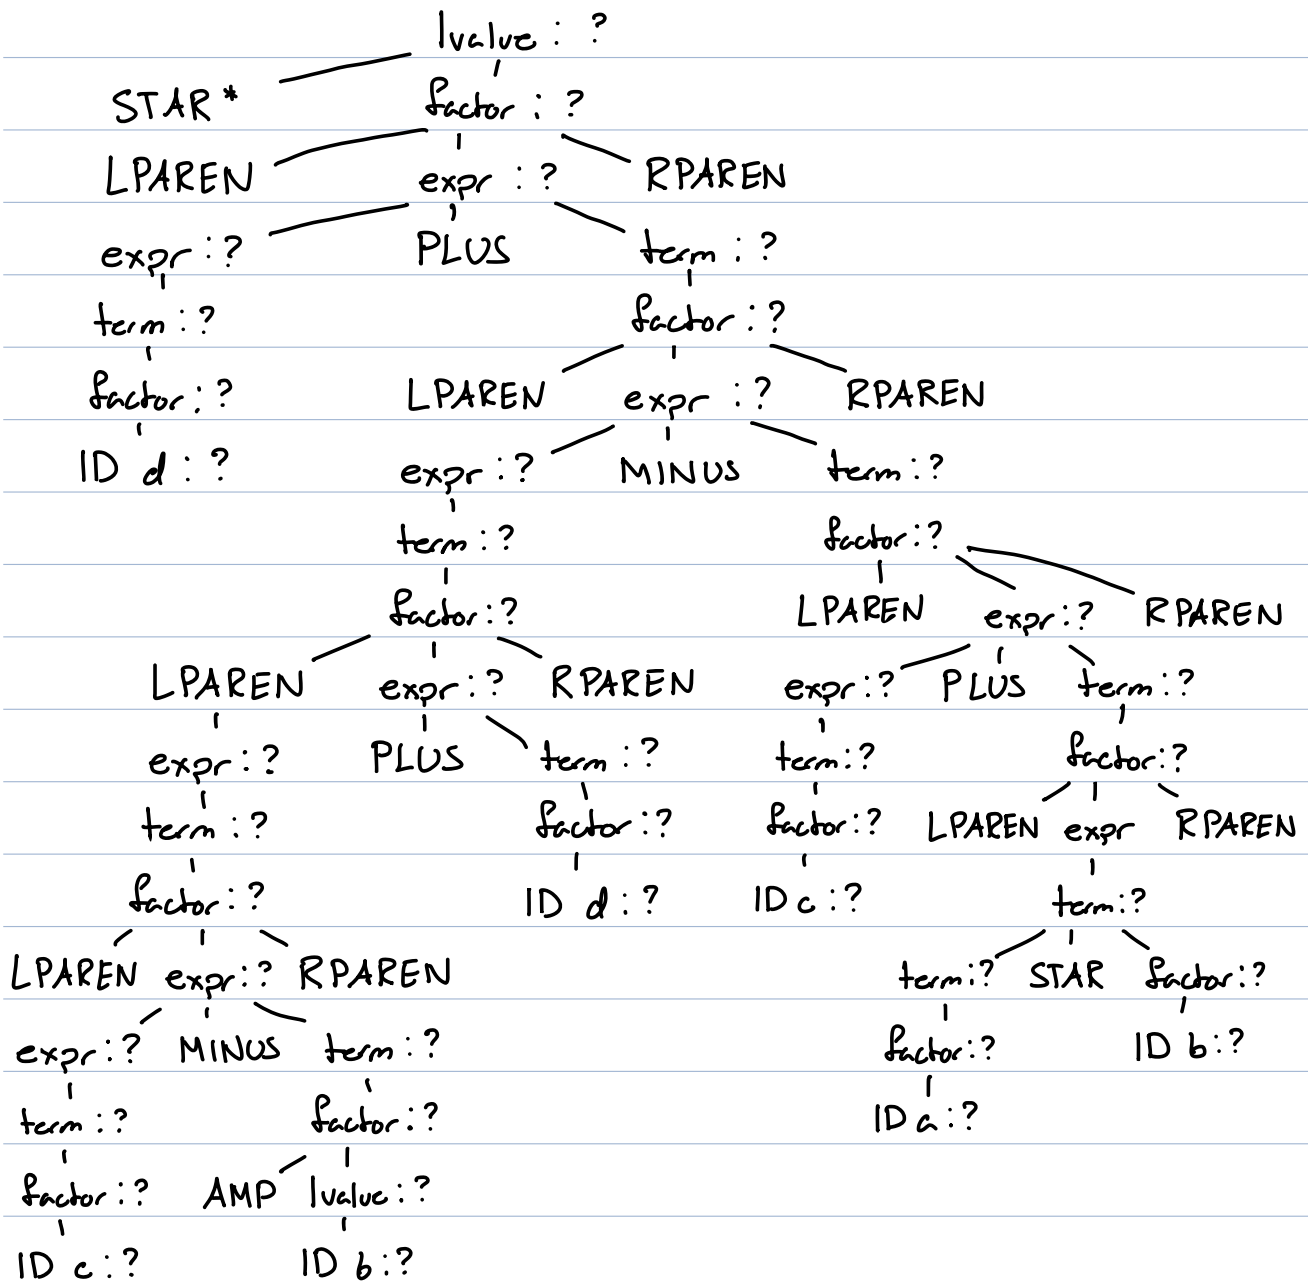 lvalue : ?
STAR * factor : ?
LPAREN expr : ? RPAREN
expr : ? PLUS term : ?
term : ? factor : ?
factor : ? LPAREN expr : ? RPAREN
ID d : ? expr : ? MINUS term : ?
term : ? factor : ?
factor : ? LPAREN expr : ? RPAREN
LPAREN expr : ? RPAREN expr : ? PLUS term : ?
expr : ? PLUS term : ? term : ? factor : ?
term : ? factor : ? factor : ? LPAREN expr RPAREN
factor : ? ID d : ? ID c : ? term : ?
LPAREN expr : ? RPAREN term : ? STAR factor : ?
expr : ? MINUS term : ? factor : ? ID b : ?
term : ? factor : ? ID a : ?
factor : ? AMP lvalue : ?
ID c : ? ID b : ?